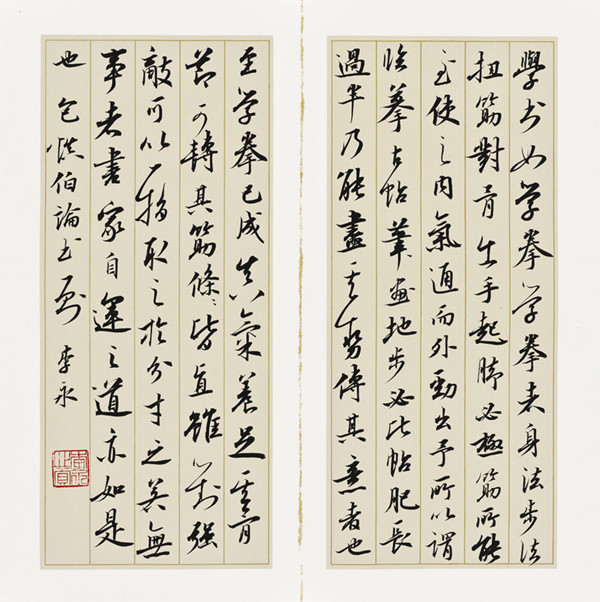 學书如学拳学拳者身法步法
扭筋對骨出手起脚必極筋所能
至使之内氣通而外勁出予所以謂
临摹古帖筆画地步必比帖肥長
過半乃能盡其势傳其意者也
至学拳已成真氣養足其骨
节可轉其筋條〻皆直雖对强
敵可以一指取之於分寸之若無
事者書家自運之道亦如是
也 包慎伯論书 李永